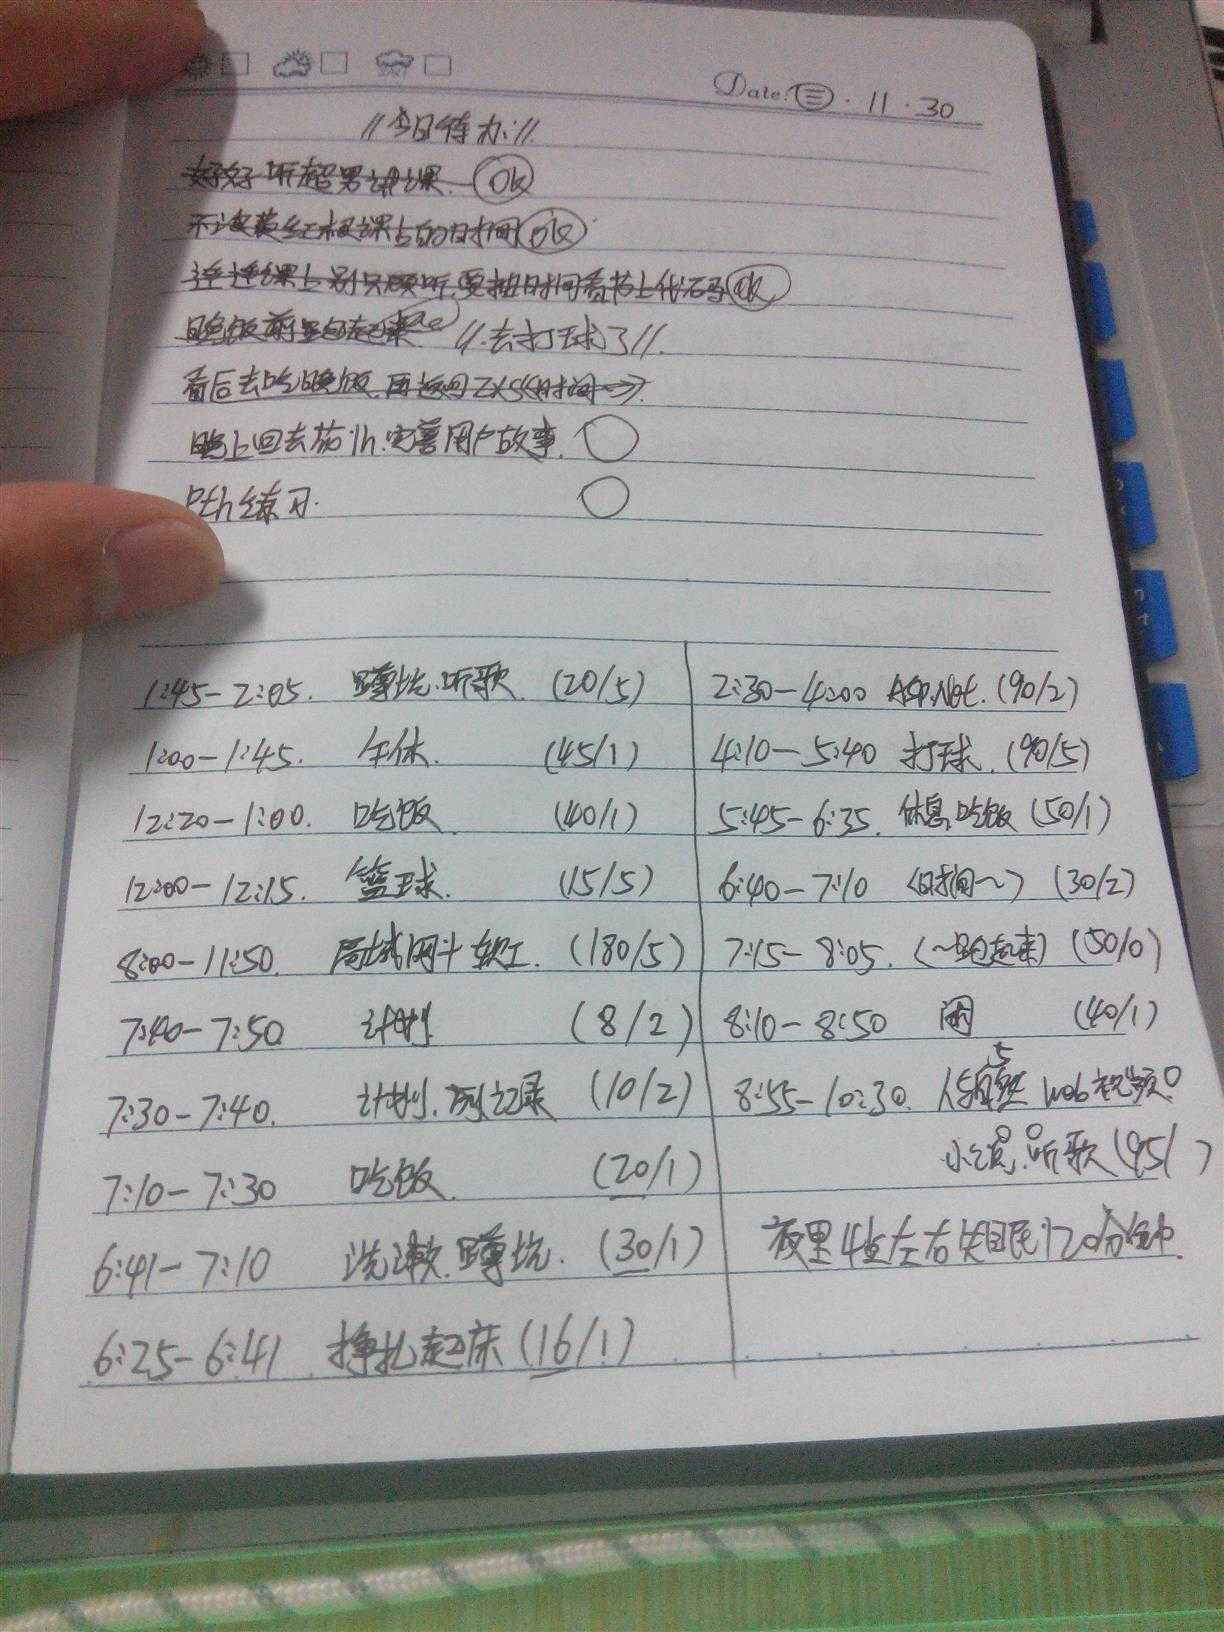 Date: 三 · 11 · 30
//今日待办://
好好听超男讲课. ok
课占的时间 ok
连课上别只顾听,要抽时间看书上代码 ok
晚饭前 //去打球了//.
看后去吃晚饭,再返回ZXS《时间~》.
晚上回去花1h.完善用户故事.
练习.
1:45-2:05. 蹲坑.听歌 (20/5)
1:00-1:45. 午休. (45/1)
12:20-1:00. 吃饭 (40/1)
12:00-12:15. 篮球. (15/5)
8:00-11:50. 局域网+软工. (180/5)
7:40-7:50 计划 (8/2)
7:30-7:40. 计划.记录 (10/2)
7:10-7:30 吃饭. (20/1)
6:41-7:10 洗漱.蹲坑. (30/1)
6:25-6:41 挣扎起床 (16/1)
2:30-4:00 ASP.Net. (90/2)
4:10-5:40 打球. (90/5)
5:45-6:35. 休息,吃饭 (50/1)
6:40-7:10 《时间~》 (30/2)
7:15-8:05. 《~跑起来》 (50/0)
8:10-8:50 闲 (40/1)
5
8:55-10:30. 人与自然 web视频0
小说0.听歌0 (95/ )
夜里4点左右失眠120分钟.